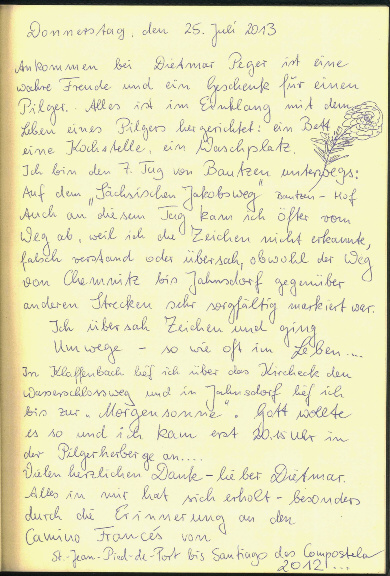 Donnerstag, den 25. Juli 2013
Ankommen bei Dietmar Peger ist eine
wahre Freude und ein Geschenk für einen
Pilger. Alles ist im Einklang mit dem
Leben eines Pilgers hergerichtet: ein Bett,
eine Kochstelle, ein Waschplatz.
Ich bin den 7. Tag von Bautzen unterwegs:
Auf dem „Sächsischen Jakobsweg" Bautzen - Hof
Auch an diesem Tag kam ich öfter vom
Weg ab, weil ich die Zeichen nicht erkannte,
falsch verstand oder übersah, obwohl der Weg
von Chemnitz bis Jahnsdorf gegenüber
anderen Strecken sehr sorgfältig markiert war.
Ich übersah Zeichen und ging
Umwege - so wie oft im Leben...
In Klaffenbach lief ich über das Kircheck den
Wasserschlossweg und in Jahnsdorf lief ich
bis zur „Morgensonne". Gott wollte
es so und ich kam erst 20.15 Uhr in
der Pilgerherberge an....
Vielen herzlichen Dank - lieber Dietmar.
Alles in mir hat sich erholt - besonders
durch die Erinnerung an den
Camino Francés von
St.-Jean-Pied-de-Port bis Santiago des Compostela
2012!...